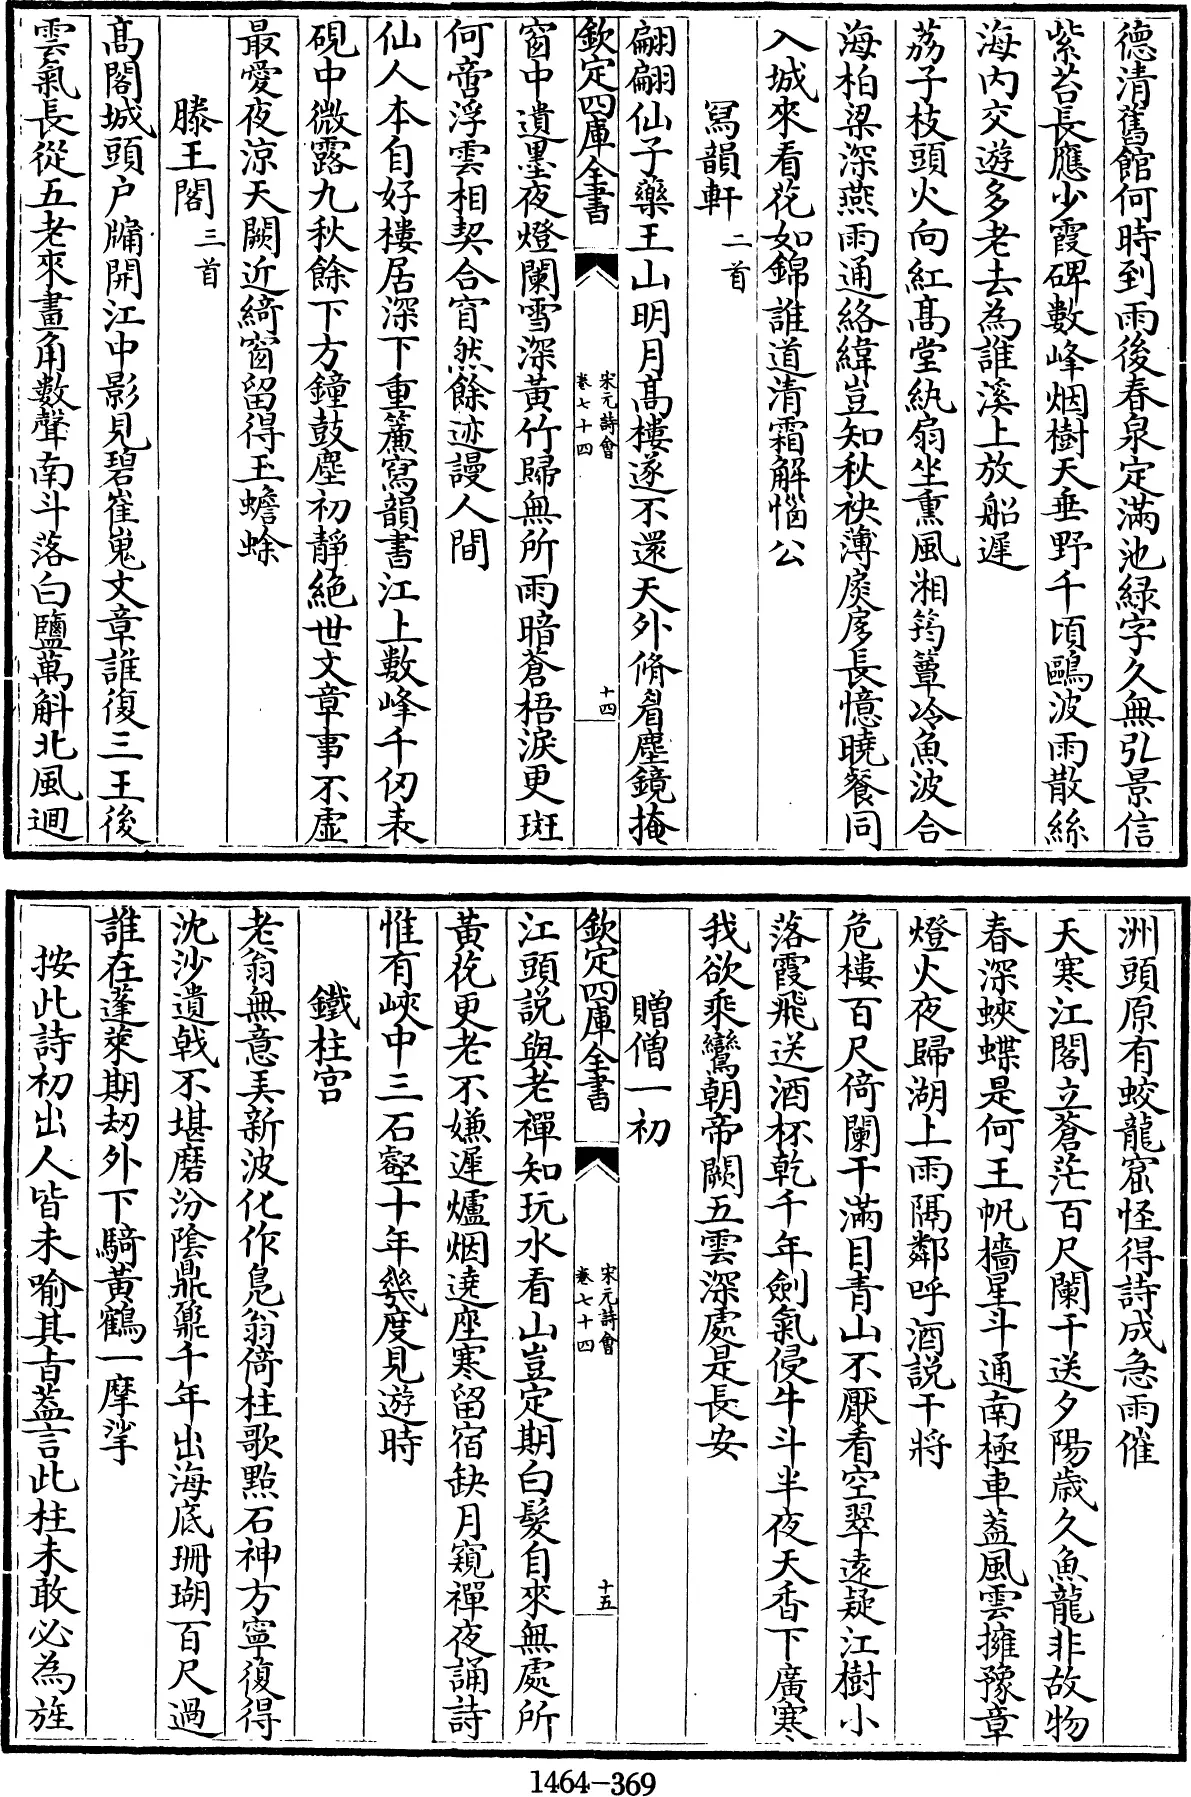 德清舊館何時到雨後春泉定滿池緑字久無弘景信
紫苔長應少霞碑數峰烟樹天垂野千頃鷗波雨散絲
海内交遊多老去為誰溪上放船遲
荔子枝頭火向紅髙堂紈扇坐熏風湘筠簟冷魚波合
海柏梁深燕雨通絡緯豈知秋袂薄扊扅長憶曉餐同
入城來看花如錦誰道清霜解惱公
冩韻軒二首
翩翩仙子藥王山明月髙樓遂不還天外脩眉塵鏡掩
欽定四庫全書
宋元詩會
卷七十四
十四
窗中遺墨夜燈闌雪深黄竹歸無所雨暗蒼梧淚更斑
何啻浮雲相契合窅然餘迹謾人間
仙人本自好樓居深下重簾寫韻書江上數峰千仞表
硯中微露九秋餘下方鐘鼓塵初靜絶世文章事不虚
最愛夜涼天闕近綺窗留得玉蟾蜍
滕王閣三首
髙閣城頭户牖開江中影見碧崔嵬文章誰復三王後
雲氣長從五老來畫角數聲南斗落白鹽萬斛北風迴
洲頭原有蛟龍窟怪得詩成急雨催
天寒江閣立蒼茫百尺闌干送夕陽歲久魚龍非故物
春深蛺蝶是何王帆檣星斗通南極車葢風雲擁豫章
燈火夜歸湖上雨隔鄰呼酒説干將
危樓百尺倚闌干滿目青山不厭看空翠遠疑江樹小
落霞飛送酒杯乾千年劍氣侵牛斗半夜天香下廣寒
我欲乘鸞朝帝闕五雲深處是長安
贈僧一初
欽定四庫全書
宋元詩會
卷七十四
十五
江頭説與老禪知玩水看山豈定期白髮自來無處所
黄花更老不嫌遲爐烟遶座寒留宿缺月窺禪夜誦詩
惟有峽中三石壑十年幾度見遊時
鐵柱宫
老翁無意美新波化作鳬翁倚柱歌點石神方寧復得
沈沙遺戟不堪磨汾陰鼎鼐千年出海底珊瑚百尺過
誰在蓬萊期刼外下騎黄鶴一摩挲
按此詩初出人皆未喻其旨葢言此柱未敢必為旌
1464-369